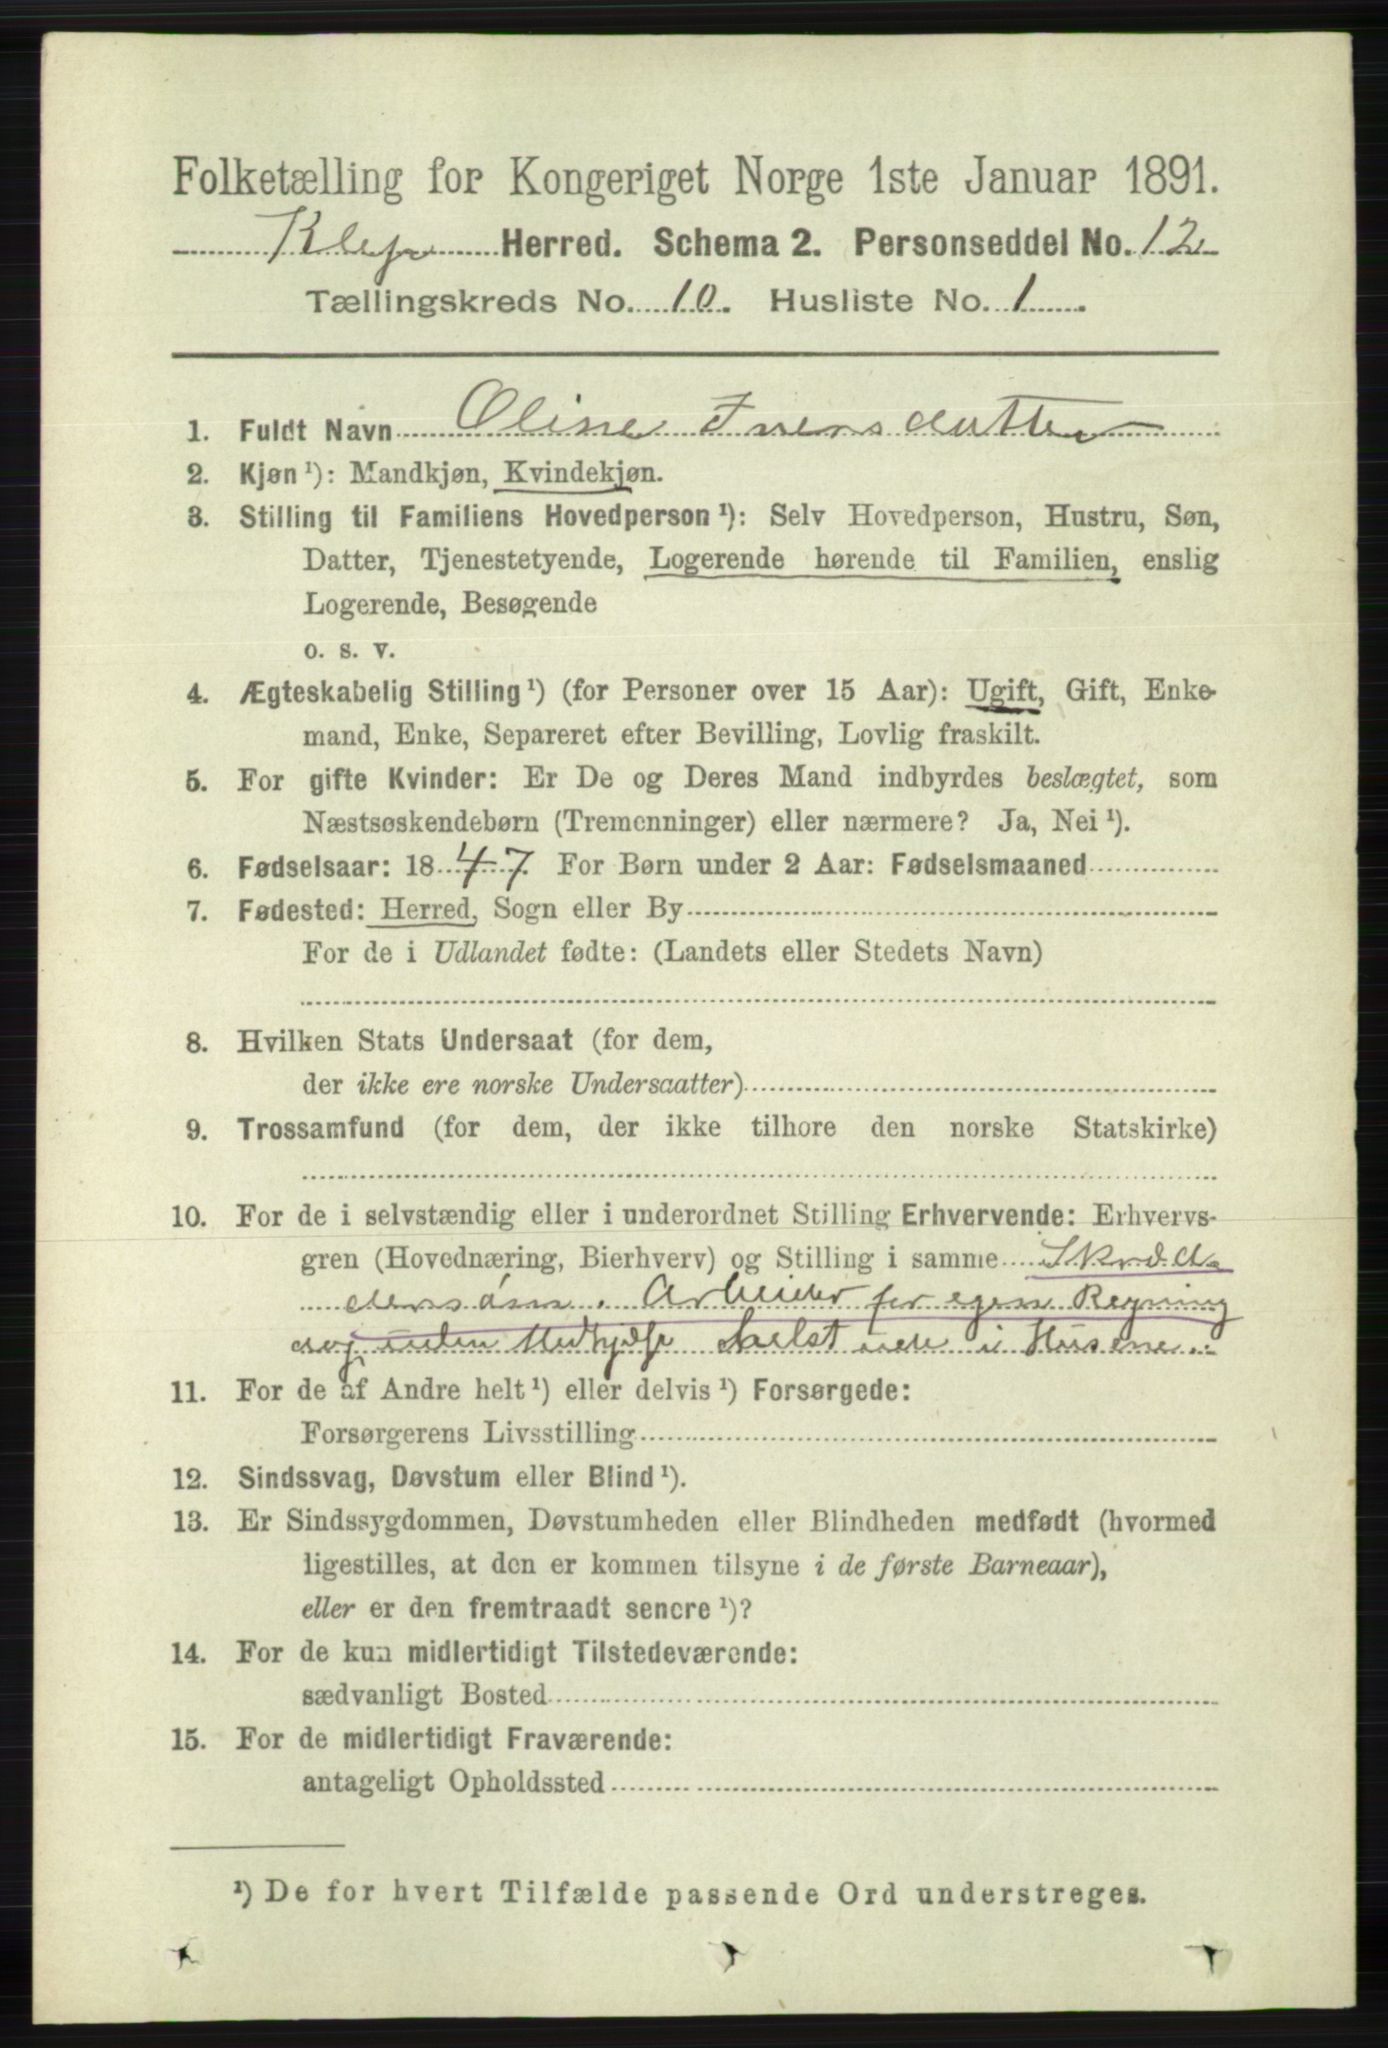 Folketælling for Kongeriget Norge 1ste Januar 1891.
Klep Herred. Schema 2. Personseddel No. 12
Tællingskreds No. 10. Husliste No. 1
1. Fuldt Navn Oline Iversdatter
2. Kjøn ¹): Mandkjøn, Kvindekjøn.
3. Stilling til Familiens Hovedperson ¹): Selv Hovedperson, Hustru, Søn,
Datter, Tjenestetyende, Logerende hørende til Familien, enslig
Logerende, Besøgende
o. s. v.
4. Ægteskabelig Stilling ¹) (for Personer over 15 Aar): Ugift, Gift, Enke-
mand, Enke, Separeret efter Bevilling, Lovlig fraskilt.
5. For gifte Kvinder: Er De og Deres Mand indbyrdes beslægtet, som
Næstsøskendebørn (Tremenninger) eller nærmere? Ja, Nei ¹).
6. Fødselsaar: 1847. For Børn under 2 Aar: Fødselsmaaned
7. Fødested: Herred, Sogn eller By
For de i Udlandet fødte: (Landets eller Stedets Navn)
8. Hvilken Stats Undersaat (for dem,
der ikke ere norske Undersaatter)
9. Trossamfund (for dem, der ikke tilhøre den norske Statskirke)
10. For de i selvstændig eller i underordnet Stilling Erhvervende: Erhvervs-
gren (Hovednæring, Bierhverv) og Stilling i samme Skræd-
Arbeider for egen Regning
og uden Medhjælp helst ude i Husene.
11. For de af Andre helt ¹) eller delvis ¹) Forsørgede:
Forsørgerens Livsstilling
12. Sindssvag, Døvstum eller Blind ¹).
13. Er Sindssygdommen, Døvstumheden eller Blindheden medfødt (hvormed
ligestilles, at den er kommen tilsyne i de første Barneaar),
eller er den fremtraadt senere ¹)?
14. For de kun midlertidigt Tilstedeværende:
sædvanligt Bosted
15. For de midlertidigt Fraværende:
antageligt Opholdssted
¹) De for hvert Tilfælde passende Ord understreges.